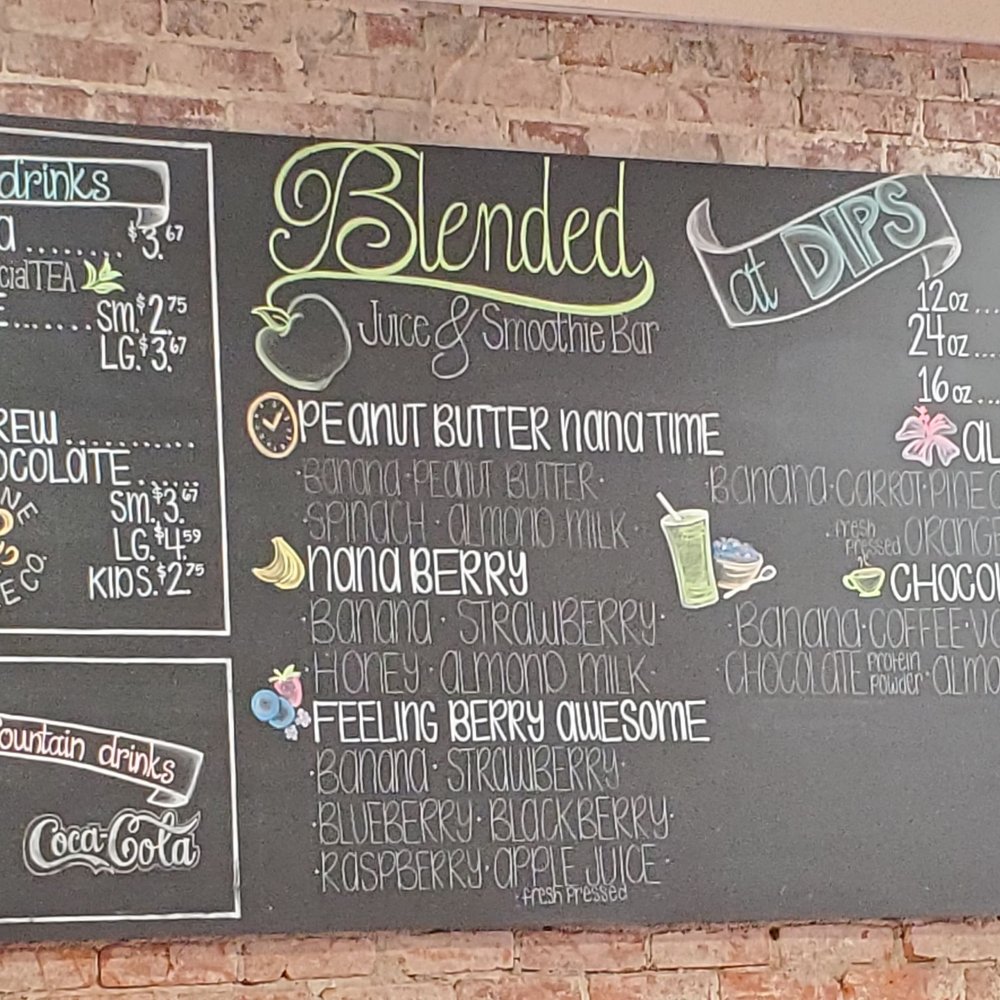 drinks
$3.67
TEA
SM. $2.75
LG. $3.67
SM. $3.67
LG. $4.59
KIDS. $2.75
drinks
Coca-Cola
Blended
Juice & Smoothie Bar
PEANUT BUTTER NANA TIME
BANANA · PEANUT BUTTER ·
· SPINACH · ALMOND MILK
NANA BERRY
· BANANA · STRAWBERRY ·
· HONEY · ALMOND MILK ·
FEELING BERRY AWESOME
· BANANA · STRAWBERRY ·
· BLUEBERRY · BLACKBERRY ·
· RASPBERRY · APPLE JUICE ·
· Fresh Pressed
at DIPS
12 oz ...
24 oz ...
16 oz ...
· BANANA · CARROT ·
· Fresh Pressed
BANANA · COFFEE ·
CHOCOLATE Protein Powder ·